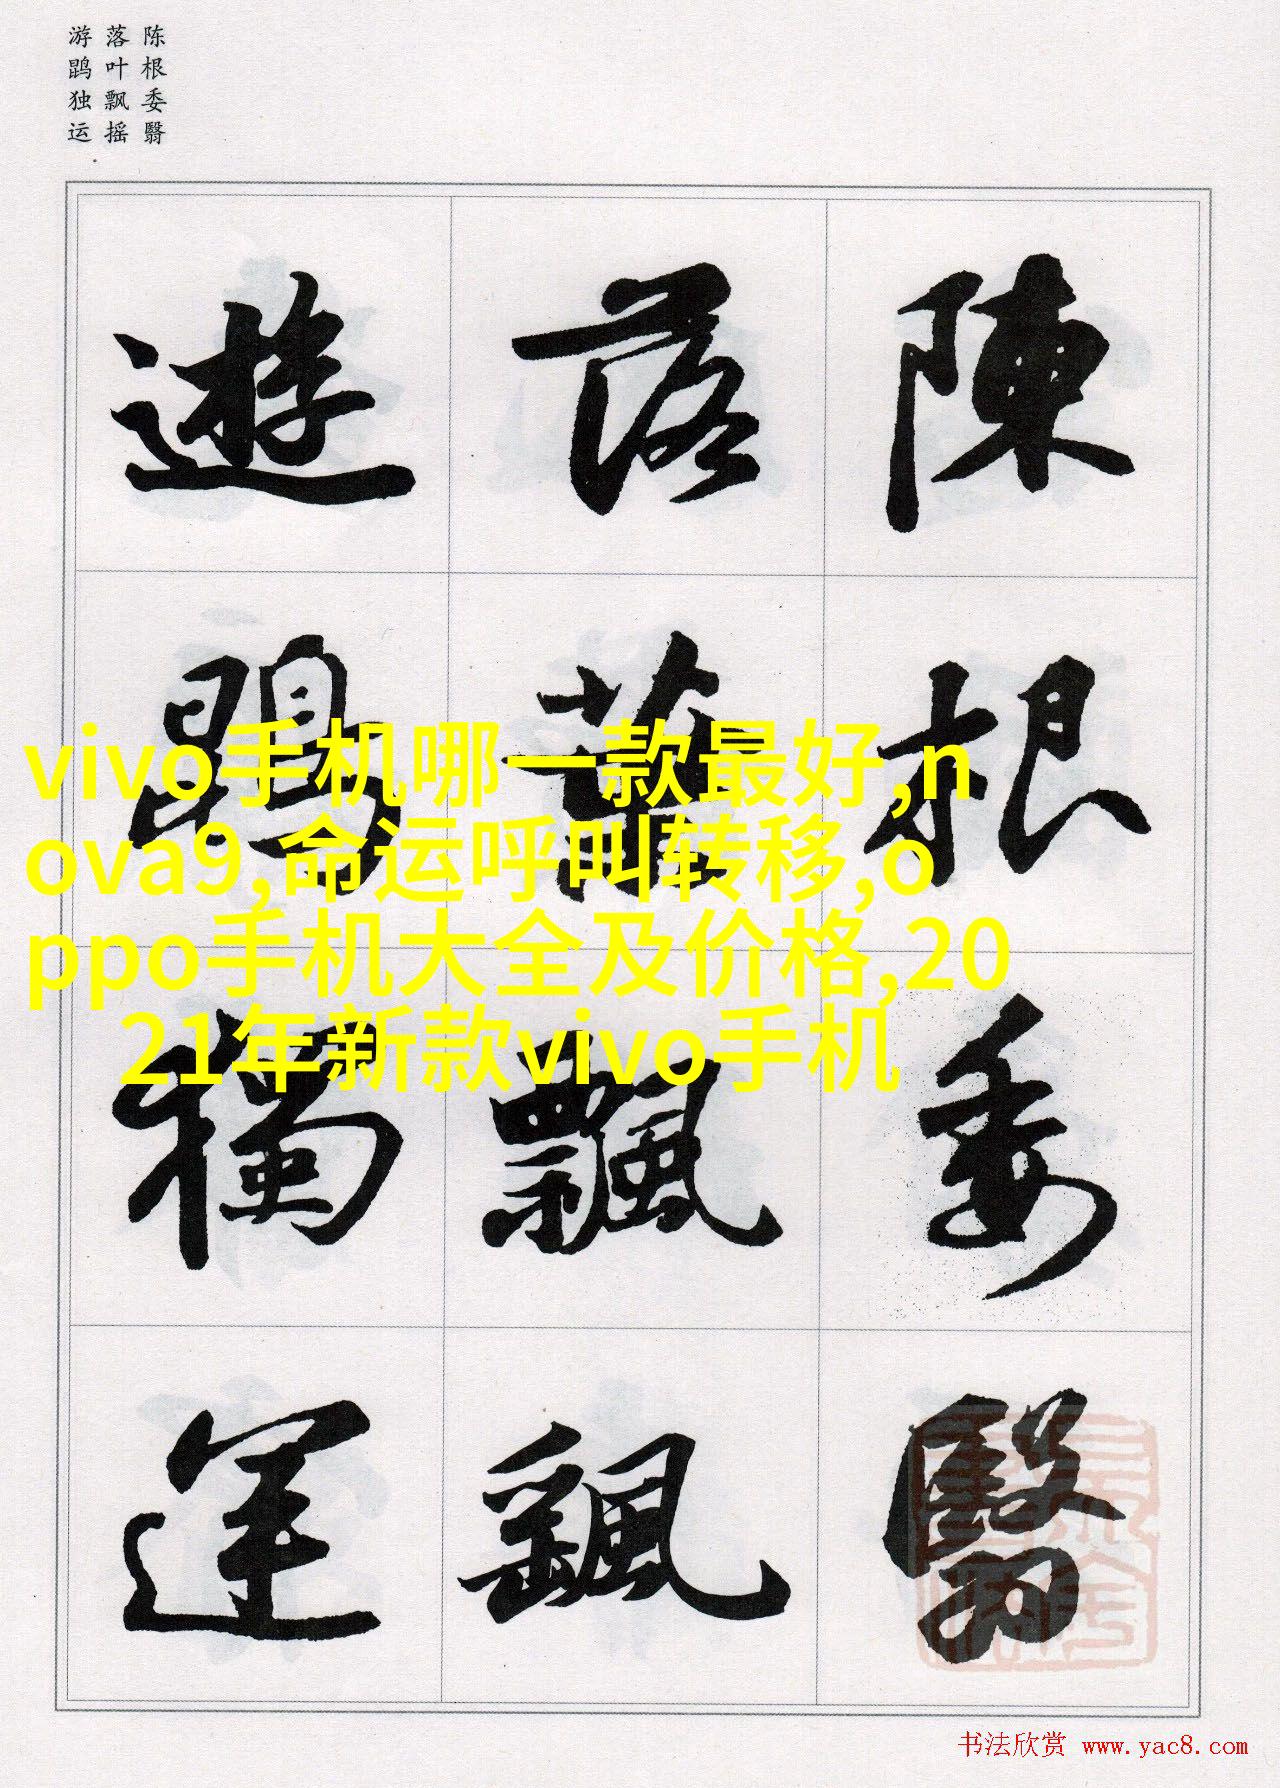 陈根委翳
落叶飘摇
游鹍独运
陳根委翳
落葉飄颻
遊鵾獨運
vivo手机哪一款最好,n
ova9,命运呼叫转移,o
ppo手机大全及价格,20
21年新款vivo手机
书法欣赏 www.yac8.com